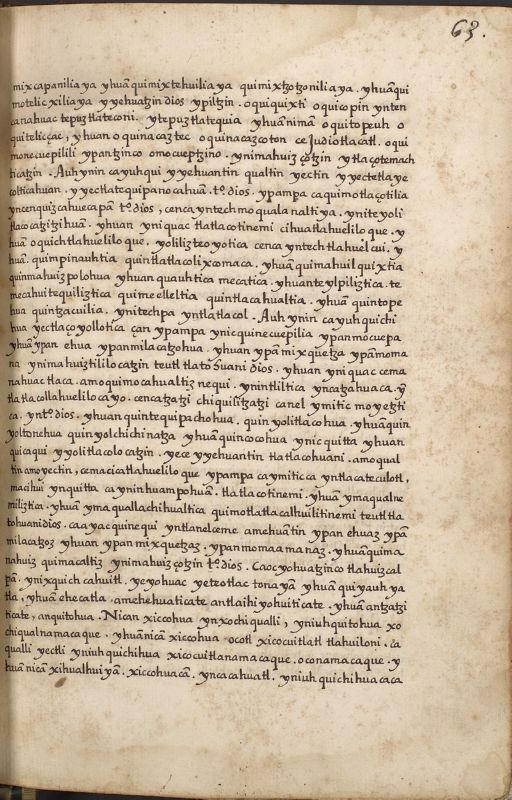 63.
mixcapanilia ya yhuā quimixtehuilia ya quimixtzotzonilia ya . yhuā qui
motelicxilia ya y yehuatzin dios ypiltzin . o quiquixti o quicopin ynten
canahuac tepuztlateconi . ytepuztlatequia yhuā nimā oquitopeuh o
quitelicçac , yhuan oquinacaztec oquinacazcoton ce Judio tlacatl . oqui
monecuepilili ypantzinco omocueptzino . ynimahuizçotzin ytlaçotemach
ticatzin . Auh ynin ca yuhqui y yehuantin qualtin yectin y yectetlaye
colticahuan . y yectlatequipanocahuā . tº. dios . ypampa ca quimotlaçotilia
yn cenquizca huecapā tº. dios , cenca yntech moquala naltiya . ynite yoli
tlacocatzitzihuā . yhuan yniquac tlatlacotinemi cihuatlahueliloque . y
huā oquichtlahueliloque . yolilizteoyotica cenca yntech tlahuelcui . y
huā . quimpinauhtia quintlatlacolixcomaca . yhuā quimahuilquixtia
quinmahuizpolohua yhuan quauhtica mecatica . yhuan teylpiliztica . te
mecahuitequiliztica quimeelleltia quintlacahualtia . yhuā quintope
hua quintzacuilia . ynitechpa yntlatlacol . Auh ynin ca yuh quichi
hua yectlaçoyollotica çan ypampa ynic quinecuepilia ypanmocuepa
yhuā ypan ehua ypanmilacatzohua . yhuan ypā mixquetza ypāmoma
na ynimahuiztililocatzin teutl tlatohuani dios . yhuan yniquac cema
nahuac tlaca . amo quimocahualtiz nequi . ynintliltica yncatzahuaca . ȳ
tlatlacollahuelilocayo . cencatzatzi chiquisitzatzi canel ymitic moyetzti
ca . yn tº. dios . yhuan quintequipachohua . quin yolitlacohua . yhuā quin
yoltonehua quin yolchichinatza yhuā quincocohua ynic quitta yhuan
quicaqui y yolitlacolocatzin . yece y yehuantin tlatlacohuani . amo qual
tin amo yectin , cemacicatlahueliloque ypampa ca ymitic ca yn tlacateculotl ,
macihui ynquitta ca yninhuampohuā . tlatlacotinemi . yhuā yma qualne
miliztica . yhuā yma quallachihualtica quimotlatlacalhuilitinemi teutl tla
tohuani dios . caayac quinequi yntlanelceme amehuātin ypan ehuaz ypā
milacatzoz yhuan ypanmixquetzaz . ypanmomaamanaz . yhuā quima
nahuiz quimacaltiz ynimahuizçotzin tº. dios . Caocyohuatzinco tlahuizcal
pā . ynixquich cahuitl . ye yohuac ye teotlac tonayā yhuā quiyauh ya
tla , yhuā ehecatla . amehehuaticate antlaihiyohuiticate . yhuā antzatzi
ticate , anquitohua . Nican xiccohua ynxochiqualli , yniuh quitohua xo
chiqualnamacaque . yhuā nicā xiccohua ocotl xicocuitlatl tlahuiloni . ca
qualli yectli yniuh quichihua xicocuitlanamacaque . oconamacaque . y
huā nicā xihualhuiyā . xiccohuacā . yncacahuatl . yniuh quichihua caca